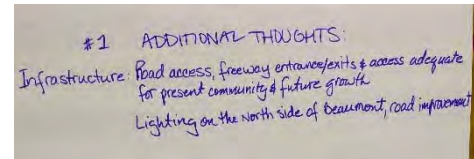 #1 ADDITIONAL THOUGHTS:
Infrastructure: Road access, freeway entrance/exits & access adequate
for present community & future growth
Lighting on the North side of Beaumont, road improvement